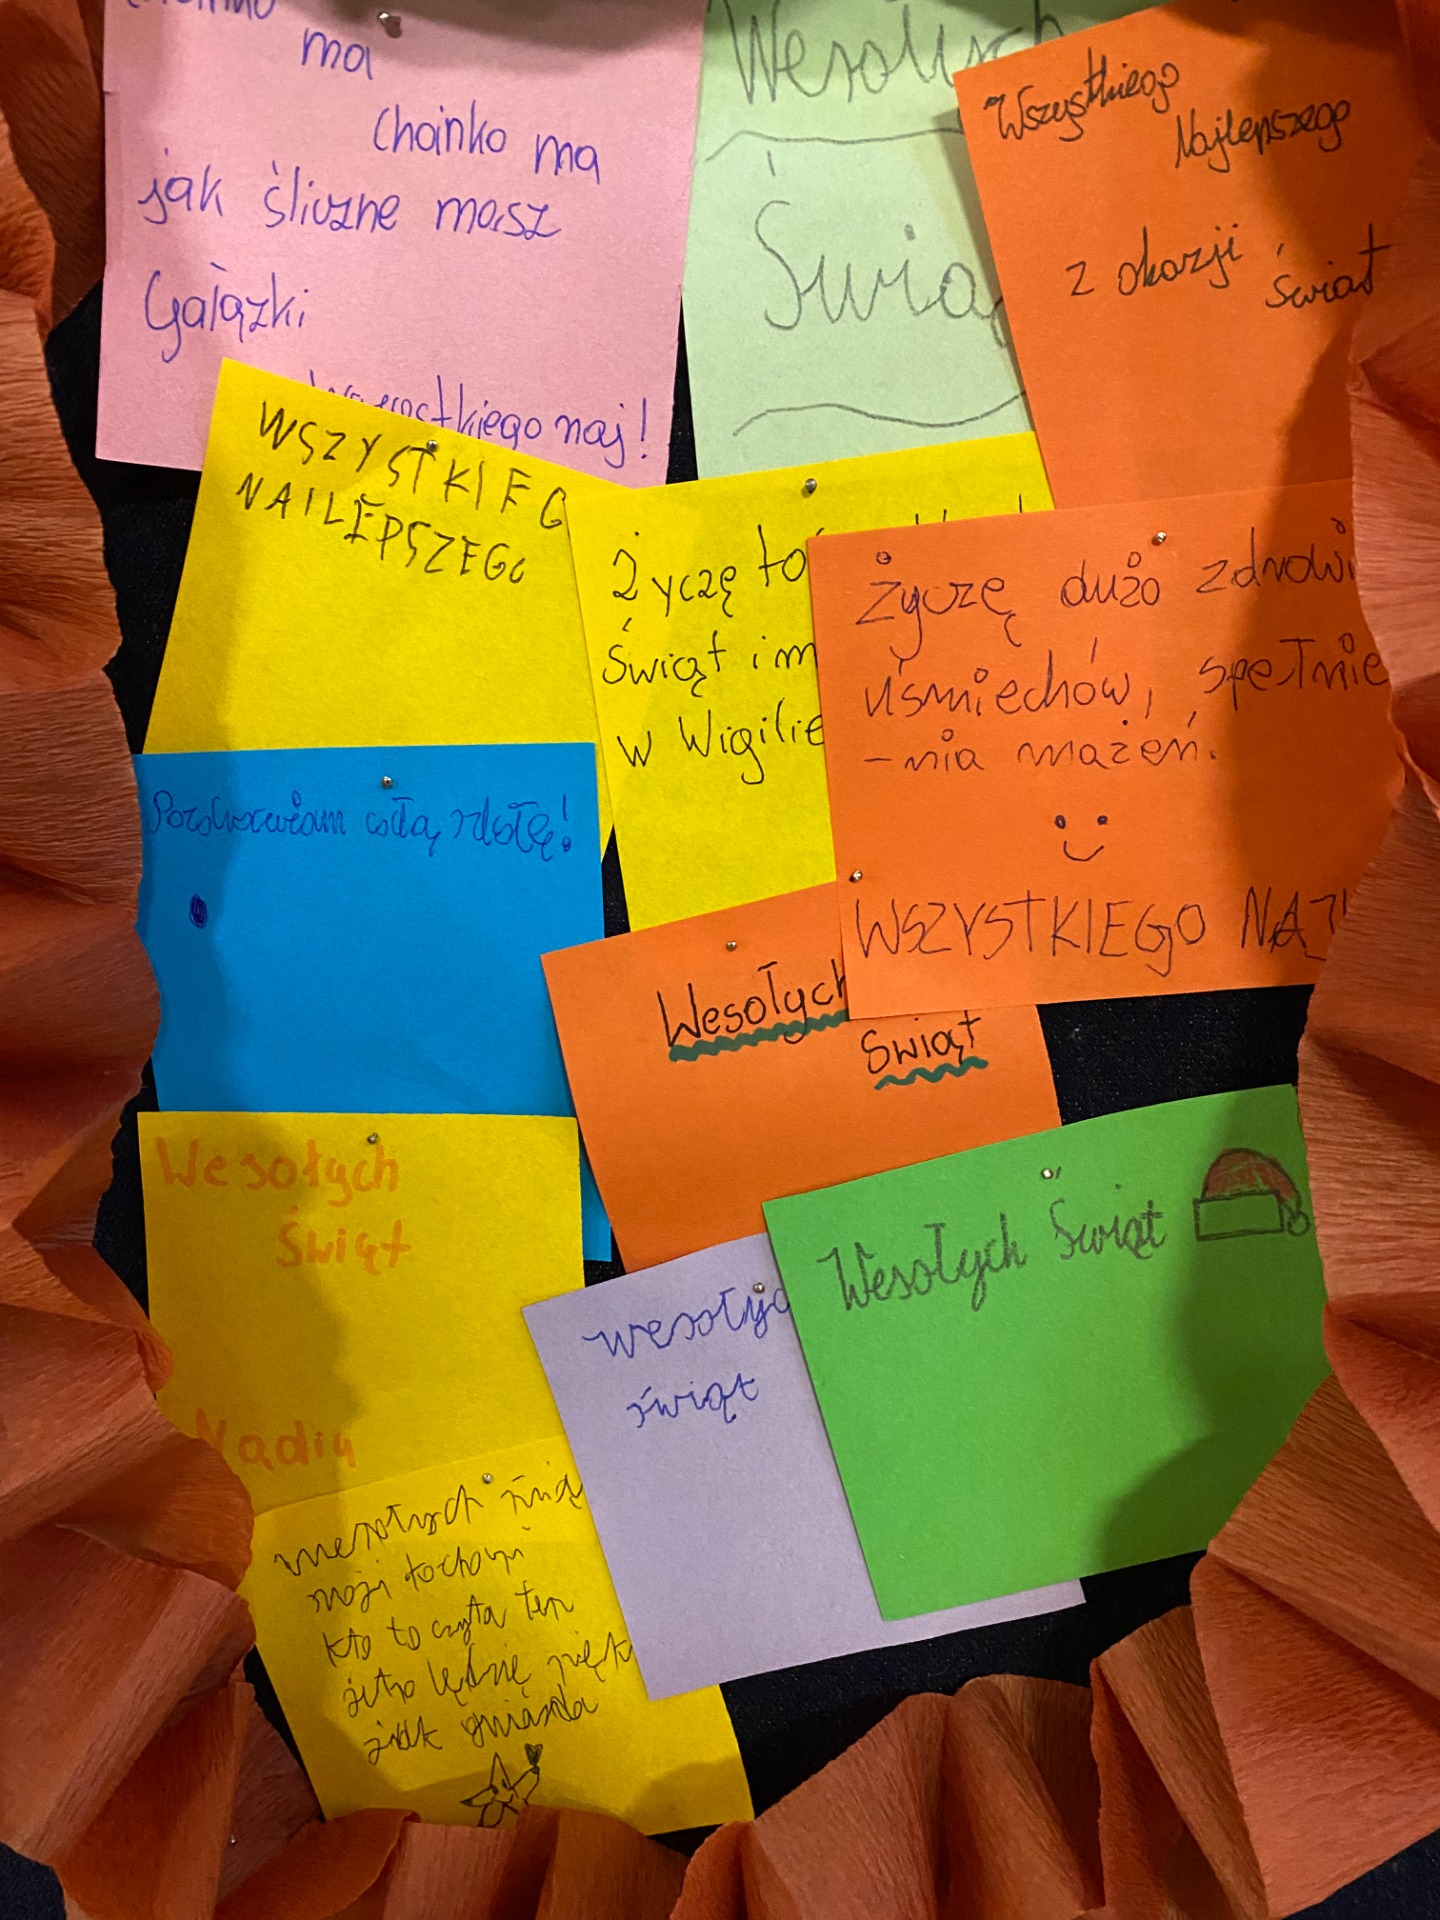 ma
choinko ma
jak śliczne masz
Gałązki
naj!
Wesołych
Świą
Wszystkiego
Najlepszego
z okazji
świąt
WSZYSTKIEG
NAJLEPSZEGO
Życzę
Świąt i m
w Wigilie
Życzę dużo zdrowi
uśmiechów, spełnie
-nia mażeń.
WSZYSTKIEGO NAJ!
Pozdrawiam całą szkołę!
Wesołych
Świąt
Wesołych
Świąt
Nadia
Wesołych Świąt
wesołyc
świąt
wesołych świą
moji kochani
kto to czyta ten
jak gwiazda